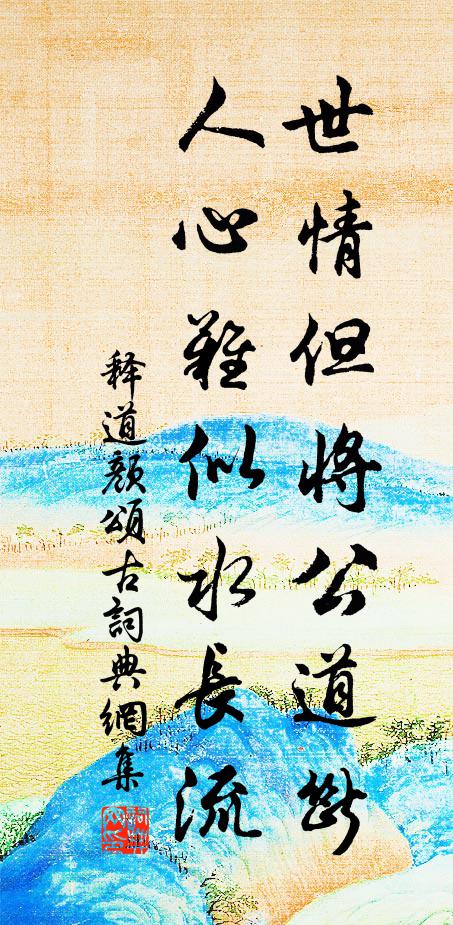 世情但將公道斷
人心難似水長流
释道顏頌古詞典網集